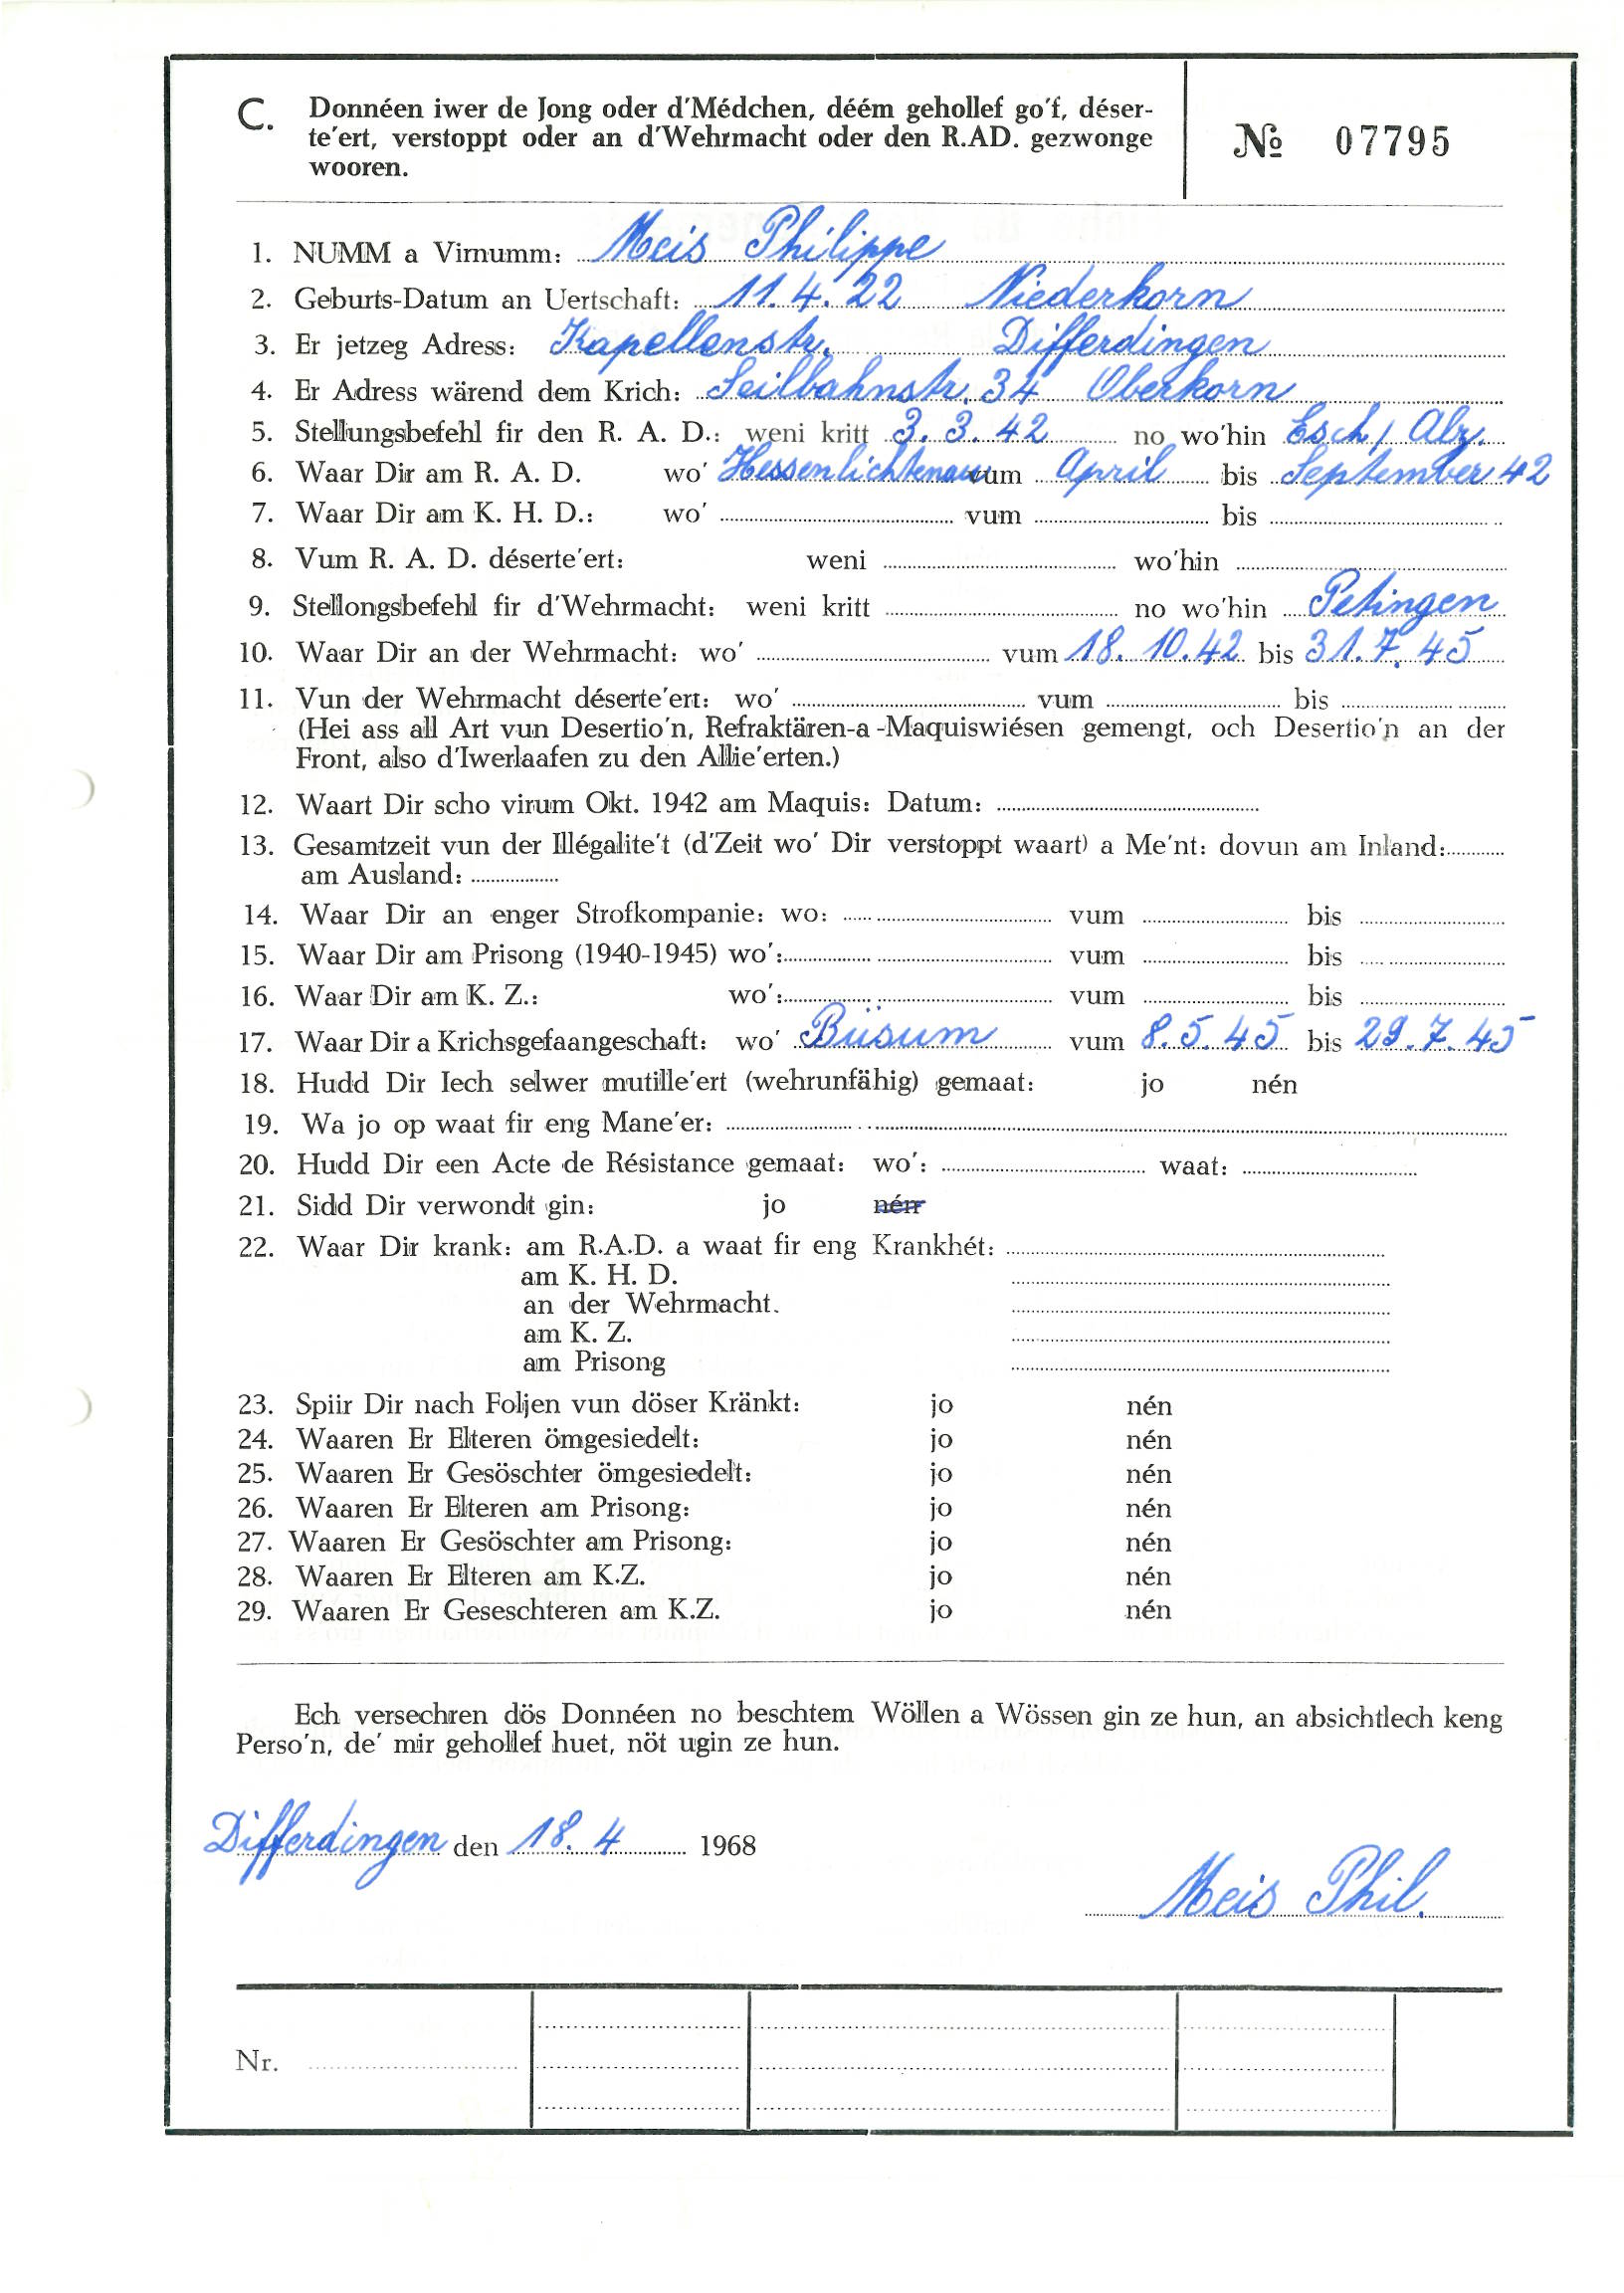 C. Donnéen iwer de Jong oder d'Médchen, déém gehollef go'f, déser-
te'ert, verstoppt oder an d'Wehrmacht oder den R.AD. gezwonge
wooren.
№ 07795
1. NUMM a Virnumm: Meis Philippe
2. Geburts-Datum an Uertschaft: 11.4.22 Niederkorn
3. Er jetzeg Adress: Kapellenstr. Differdingen
4. Er Adress wärend dem Krich: Seilbahnstr. 34 Oberkorn
5. Stellungsbefehl fir den R. A. D.: weni kritt 3.3.42 no wo'hin Esch/Alz.
6. Waar Dir am R. A. D. wo' Hessenlichtenau vum April bis September 42
7. Waar Dir am K. H. D.: wo' vum bis
8. Vum R. A. D. déserte'ert: weni wo'hin
9. Stellongsbefehl fir d'Wehrmacht: weni kritt no wo'hin Petingen
10. Waar Dir an der Wehrmacht: wo' vum 18.10.42 bis 31.7.45
11. Vun der Wehrmacht déserte'ert: wo' vum bis
(Hei ass all Art vun Desertio'n, Refraktären-a-Maquiswiésen gemengt, och Desertio'n an der
Front, also d'Iwerlaafen zu den Allie'erten.)
12. Waart Dir scho virum Okt. 1942 am Maquis: Datum:
13. Gesamtzeit vun der Illégalite't (d'Zeit wo' Dir verstoppt waart) a Me'nt: dovun am Inland:
am Ausland:
14. Waar Dir an enger Strofkompanie: wo: vum bis
15. Waar Dir am Prisong (1940-1945) wo': vum bis
16. Waar Dir am K. Z.: wo': vum bis
17. Waar Dir a Krichsgefaangeschaft: wo' Büsum vum 8.5.45 bis 29.7.45
18. Hudd Dir Iech selwer mutille'ert (wehrunfähig) gemaat: jo nén
19. Wa jo op waat fir eng Mane'er:
20. Hudd Dir een Acte de Résistance gemaat: wo': waat:
21. Sidd Dir verwondt gin: jo nén
22. Waar Dir krank: am R.A.D. a waat fir eng Krankhét:
am K. H. D.
an der Wehrmacht.
am K. Z.
am Prisong
23. Spiir Dir nach Foljen vun döser Kränkt: jo nén
24. Waaren Er Elteren ömgesiedelt: jo nén
25. Waaren Er Gesöschter ömgesiedelt: jo nén
26. Waaren Er Elteren am Prisong: jo nén
27. Waaren Er Gesöschter am Prisong: jo nén
28. Waaren Er Elteren am K.Z. jo nén
29. Waaren Er Geseschteren am K.Z. jo nén
Ech versechren dös Donnéen no beschtem Wöllen a Wössen gin ze hun, an absichtlech keng
Perso'n, de' mir gehollef huet, nöt ugin ze hun.
Differdingen den 18.4 1968
Meis Phil.
Nr.